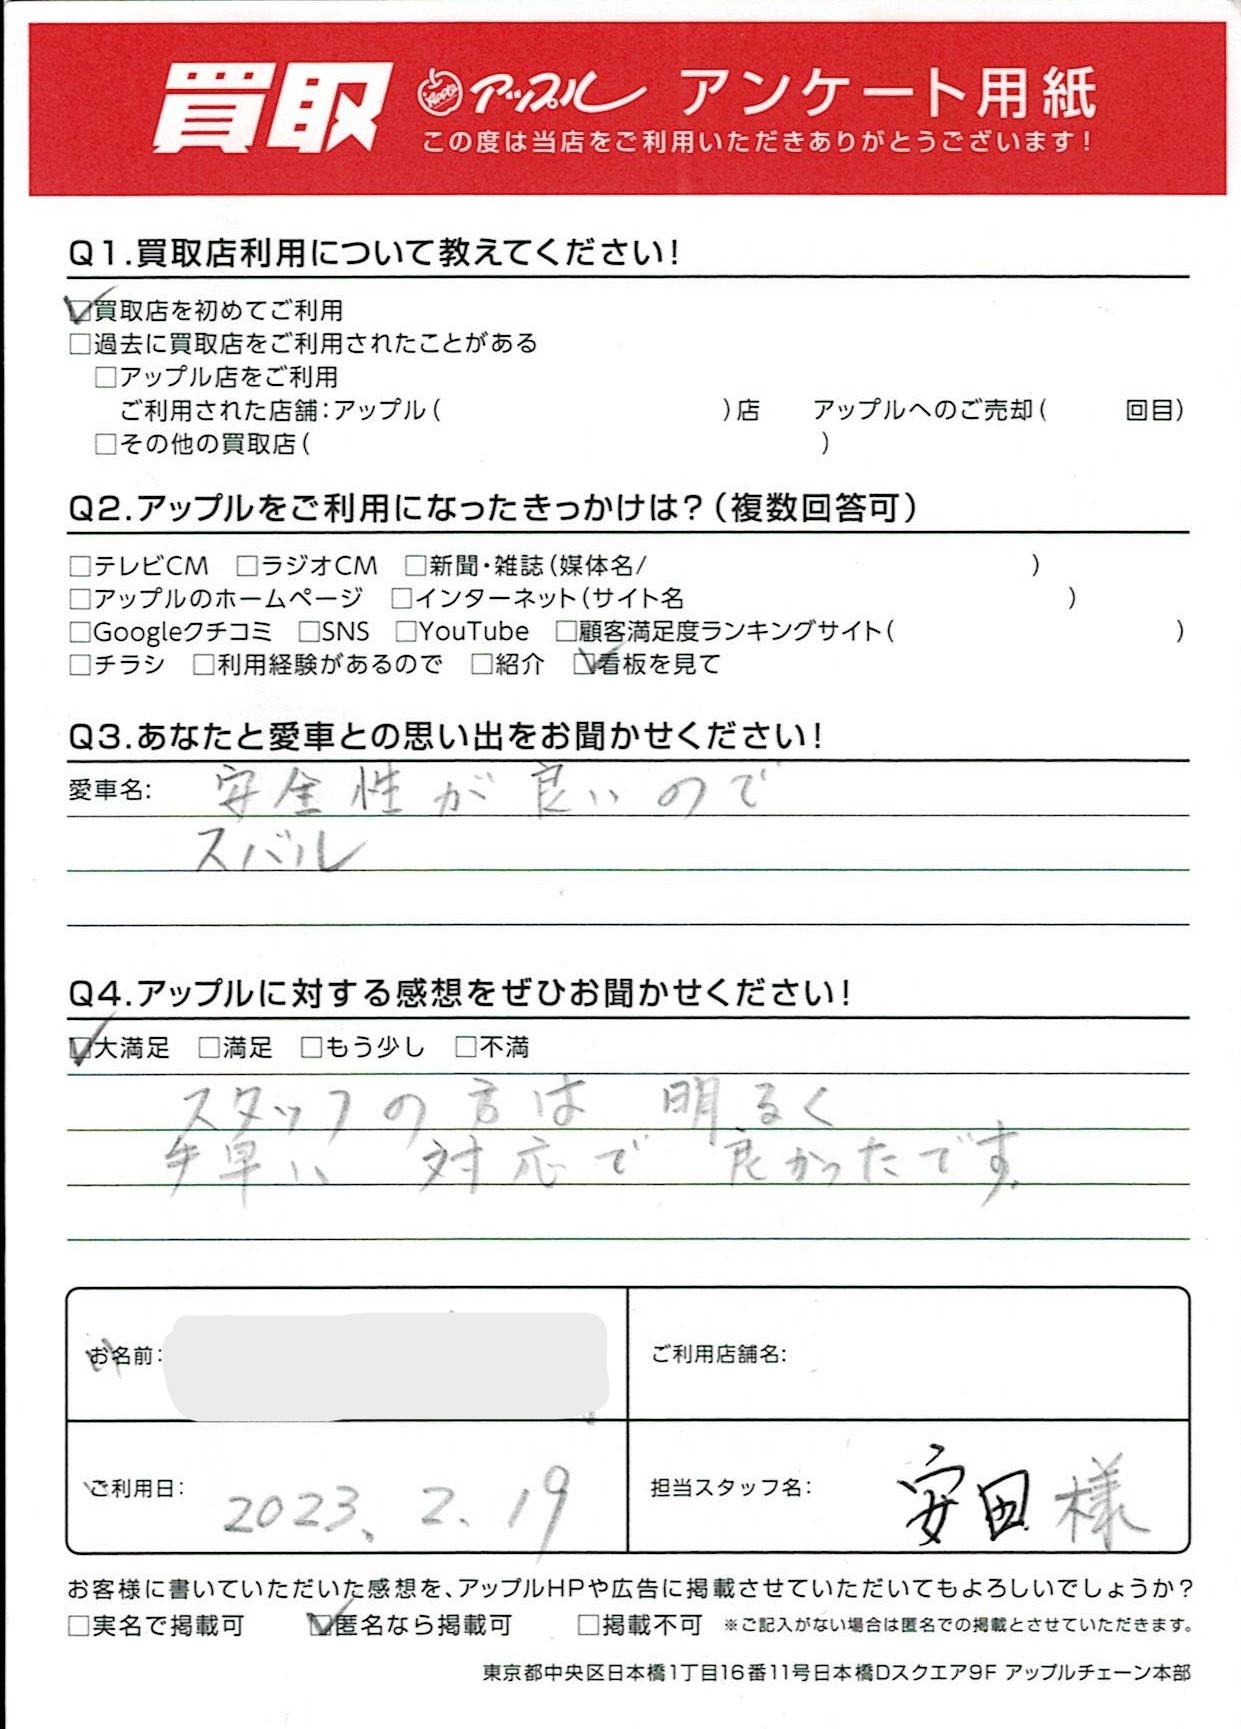 買取 アップル アンケート用紙
この度は当店をご利用いただきありがとうございます!
Q1.買取店利用について教えてください!
☑買取店を初めてご利用
□過去に買取店をご利用されたことがある
□アップル店をご利用
ご利用された店舗:アップル( )店 アップルへのご売却( 回目)
□その他の買取店( )
Q2.アップルをご利用になったきっかけは?(複数回答可)
□テレビCM □ラジオCM □新聞・雑誌(媒体名/ )
□アップルのホームページ □インターネット(サイト名 )
□Googleクチコミ □SNS □YouTube □顧客満足度ランキングサイト( )
□チラシ □利用経験があるので □紹介 ☑看板を見て
Q3.あなたと愛車との思い出をお聞かせください!
愛車名: 安全性が良いので
スバル
Q4.アップルに対する感想をぜひお聞かせください!
☑大満足 □満足 □もう少し □不満
スタッフの方は 明るく
手早い 対応で 良かったです。
お名前:
ご利用店舗名:
ご利用日: 2023.2.19
担当スタッフ名: 安田様
お客様に書いていただいた感想を、アップルHPや広告に掲載させていただいてもよろしいでしょうか?
□実名で掲載可 ☑匿名なら掲載可 □掲載不可 ※ご記入がない場合は匿名での掲載とさせていただきます。
東京都中央区日本橋1丁目16番11号日本橋Dスクエア9F アップルチェーン本部